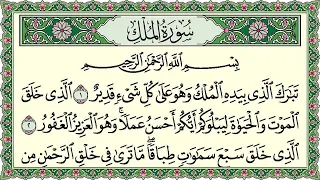 سُورَةُ الْمُلْكِ
بِسْمِ اللَّهِ الرَّحْمَٰنِ الرَّحِيمِ
تَبَارَكَ الَّذِي بِيَدِهِ الْمُلْكُ وَهُوَ عَلَىٰ كُلِّ شَيْءٍ قَدِيرٌ ۝١ الَّذِي خَلَقَ
الْمَوْتَ وَالْحَيَوٰةَ لِيَبْلُوَكُمْ أَيُّكُمْ أَحْسَنُ عَمَلًا ۚ وَهُوَ الْعَزِيزُ الْغَفُورُ ۝٢
الَّذِي خَلَقَ سَبْعَ سَمَٰوَٰتٍ طِبَاقًا ۖ مَّا تَرَىٰ فِي خَلْقِ الرَّحْمَٰنِ مِن